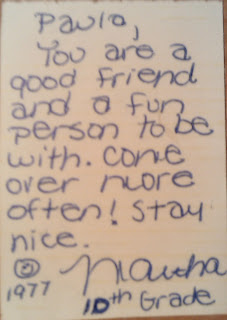 Paula,
You are a
good friend
and a fun
person to be
with. Come
over more
often! Stay
nice.
© Martha
1977
10th Grade